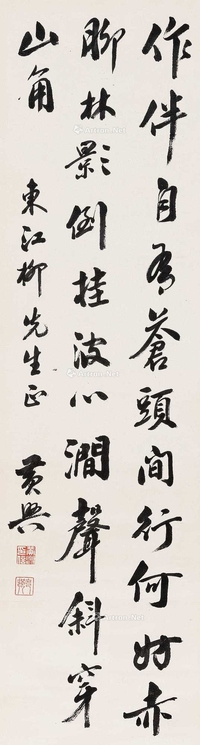 作伴自有蒼頭間行何妨赤
脚林影倒挂波心澗聲斜穿
山角
東江柳先生正
黄興